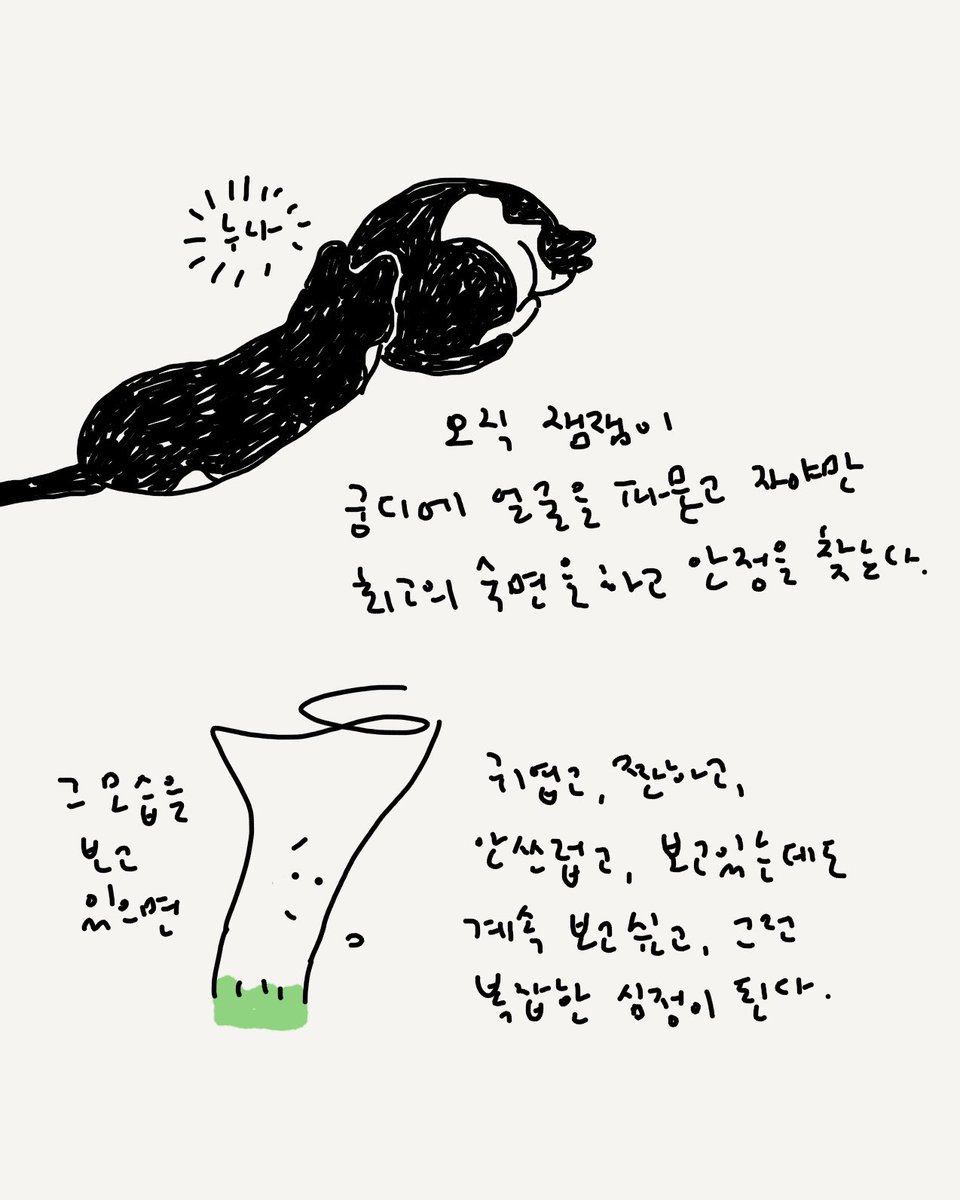 누나
오직 잼잼이
궁디에 얼굴을 파묻고 자야만
최고의 숙면을 하고 안정을 찾는다.
그 모습을
보고
있으면
귀엽고, 짠하고,
안쓰럽고, 보고있는데도
계속 보고싶고, 그런
복잡한 심정이 된다.